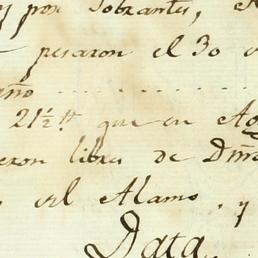 y por Sobrantes,
pesaron el 30
ño ............
21½ tt que en Ag
eron libres de Dñ
el Alamo, y
Data